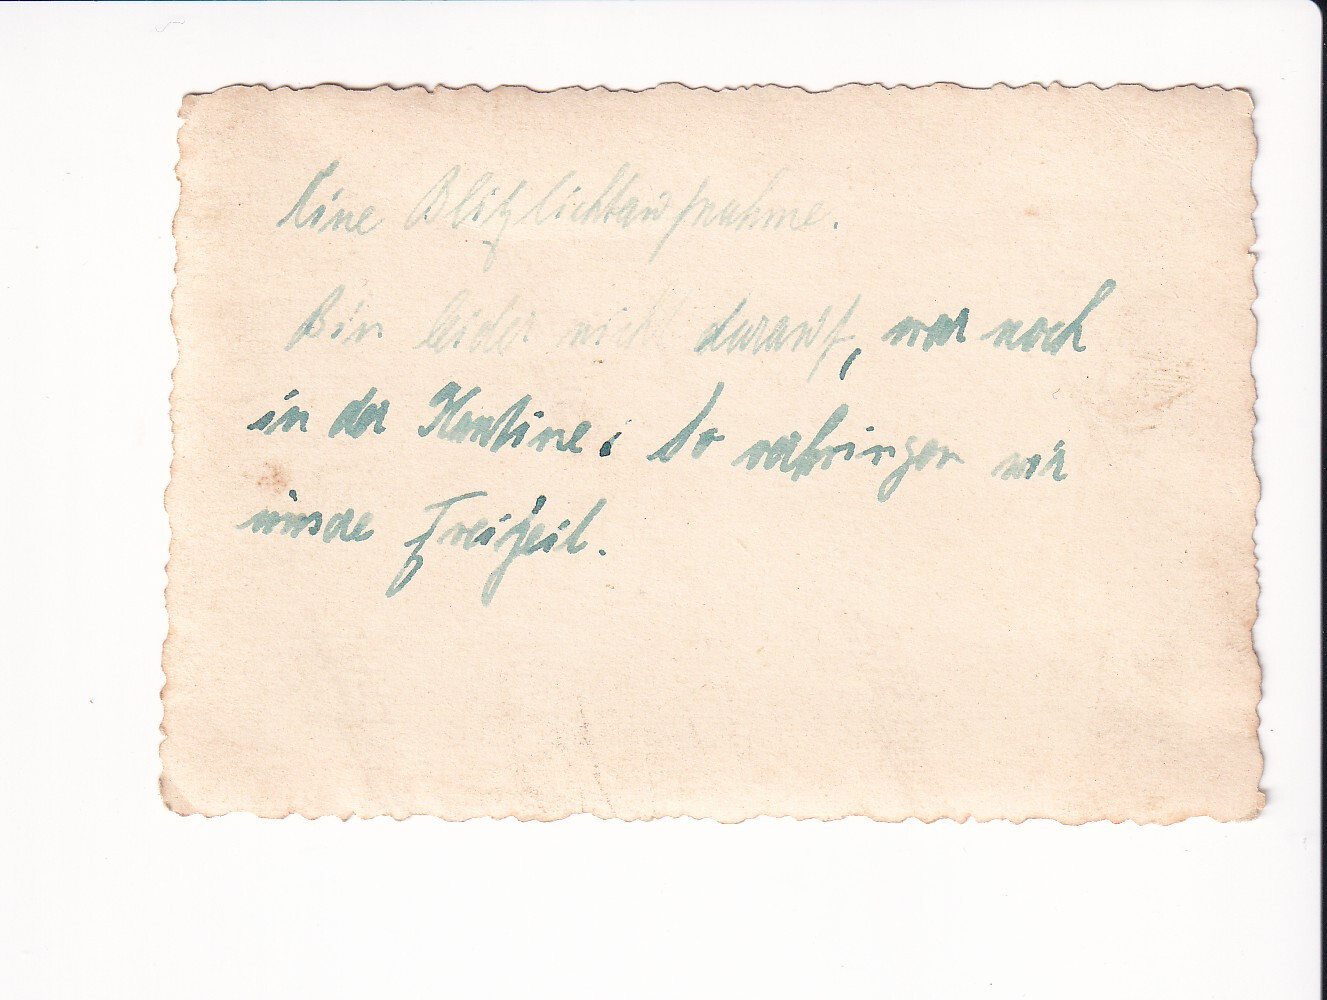 Eine Blitzlichtaufnahme.
Bin leider nicht darauf, war noch
in der Kantine. So verbringen wir
unsre Freizeit.